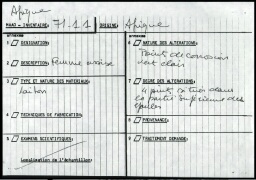 Afrique
MAHD - INVENTAIRE 71.1.1 ORIGINE: Afrique
1 DESIGNATION:
6 NATURE DES ALTERATIONS:
Point de corrosion
vert clair
2 DESCRIPTION: Femme assise
3 TYPE ET NATURE DES MATERIAUX:
Laiton
7 DEGRE DES ALTERATIONS:
4 points situés dans
la partie supérieure des
4 TECHNIQUES DE FABRICATION:
8 PROVENANCE:
5 EXAMENS SCIENTIFIQUES:
9 TRAITEMENT DEMANDE:
Localisation de l'échantillon: